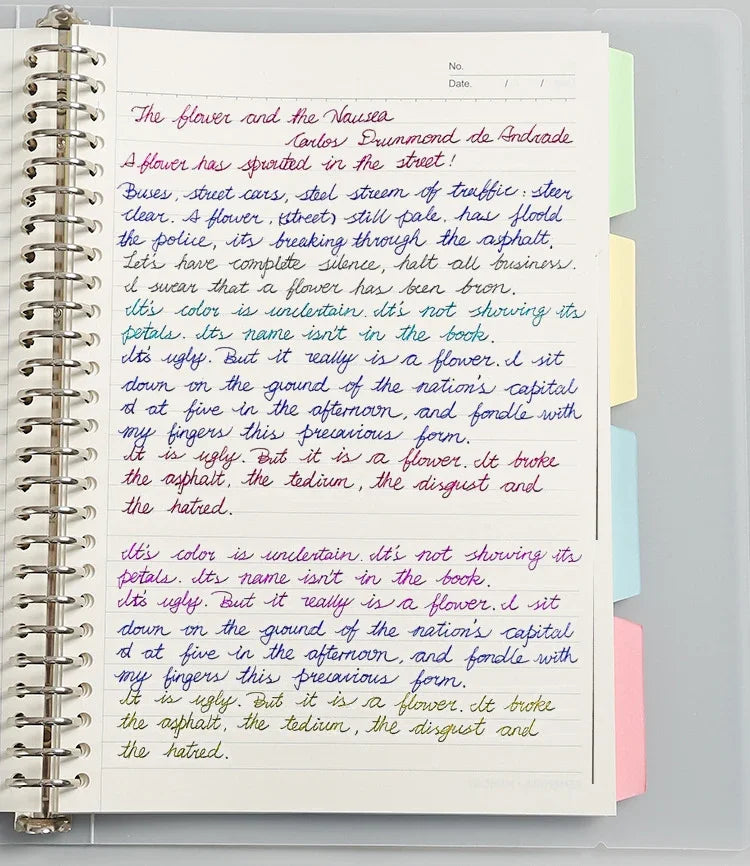 No.
Date. / /
The flower and the Nausea
Carlos Drunmond de Andrade
A flower has sprouted in the street!
Buses, street cars, steel stream of traffic: steer
clear. A flower, (street) still pale, has floold
the police, its breaking through the asphalt.
Let's have complete silence, halt all business.
I swear that a flower has been bron.
It's color is unclertain. It's not showing its
petals. Its name isn't in the book.
It's ugly. But it really is a flower. I sit
down on the ground of the nation's capital
d at five in the afternoon, and fondle with
my fingers this precavious form.
It is ugly. But it is a flower. It broke
the asphalt, the tedium, the disgust and
the hatred.
It's color is unclertain. It's not showing its
petals. Its name isn't in the book.
It's ugly. But it really is a flower. I sit
down on the ground of the nation's capital
d at five in the afternoon, and fondle with
my fingers this precavious form.
It is ugly. But it is a flower. It broke
the asphalt, the tedium, the disgust and
the hatred.